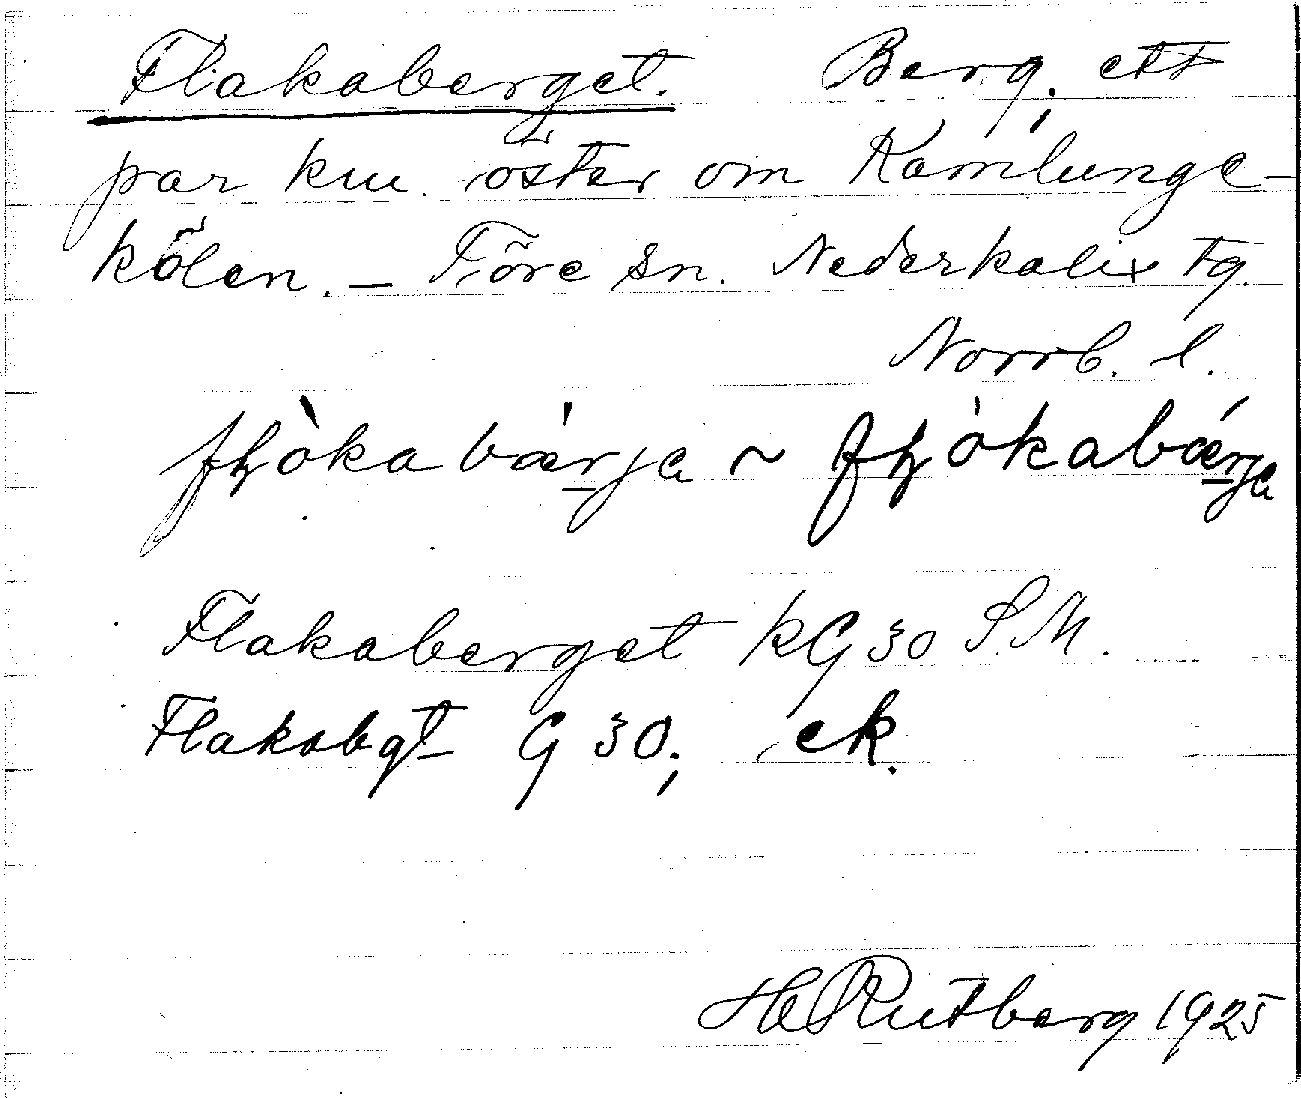 Flakaberget. Berg, ett
par km. öster om Kamlunge-
kölen. – Töre sn. Nederkalix tg.
Norrb. l.
Flakaberget KG 30 S.M.
Flakabgt G 30; ek.
H Rutberg 1925